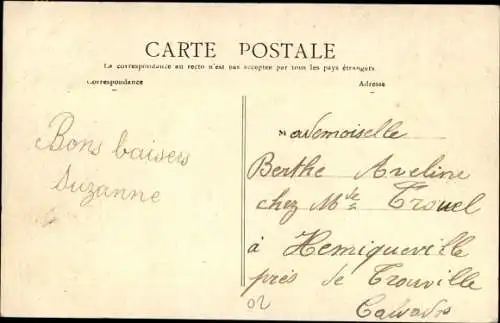 CARTE POSTALE
La correspondance au recto n'est pas acceptée par tous les pays étrangers
Correspondance
Adresse
Bons baisers
Suzanne
Mademoiselle
Berthe Aveline
chez Mde Trouel
à Hemiqueville
près de Trouville
Calvados
02